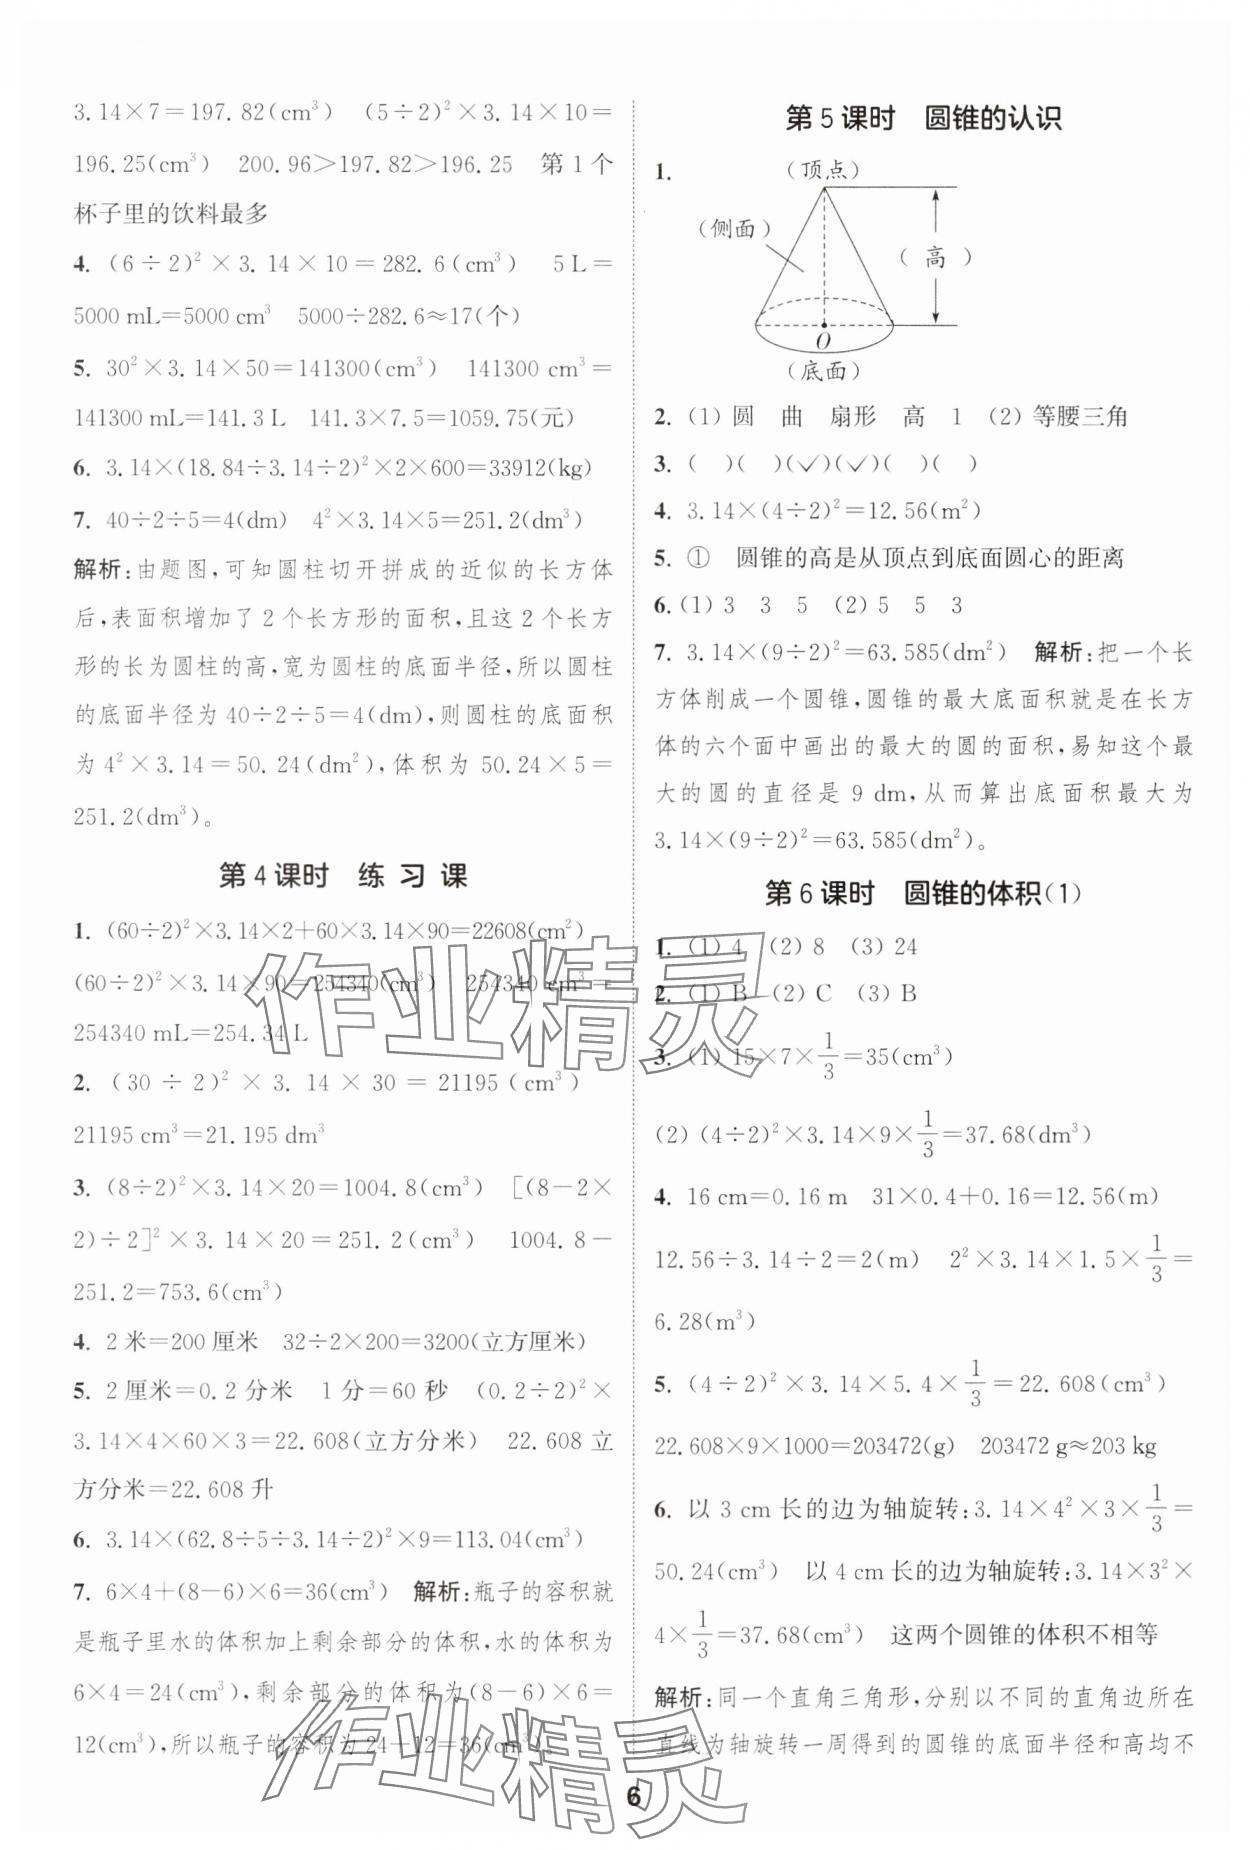 3.14×7=197.82(cm³) (5÷2)²×3.14×10=
196.25(cm³) 200.96>197.82>196.25 第1个
杯子里的饮料最多
4. (6÷2)²×3.14×10=282.6(cm³) 5 L=
5000 mL=5000 cm³ 5000÷282.6≈17(个)
5. 30²×3.14×50=141300(cm³) 141300 cm³=
141300 mL=141.3 L 141.3×7.5=1059.75(元)
6. 3.14×(18.84÷3.14÷2)²×2×600=33912(kg)
7. 40÷2÷5=4(dm) 4²×3.14×5=251.2(dm³)
解析:由题图,可知圆柱切开拼成的近似的长方体
后,表面积增加了2个长方形的面积,且这2个长方
形的长为圆柱的高,宽为圆柱的底面半径,所以圆柱
的底面半径为40÷2÷5=4(dm),则圆柱的底面积
为4²×3.14=50.24(dm²),体积为50.24×5=
251.2(dm³)。
第4课时 练习课
1. (60÷2)²×3.14×2+60×3.14×90=22608(cm²)
(60÷2)²×3.14×90=254340(cm³) 254340 cm³=
254340 mL=254.34 L
2. (30÷2)²×3.14×30=21195(cm³)
21195 cm³=21.195 dm³
3. (8÷2)²×3.14×20=1004.8(cm³) [(8-2×
2)÷2]²×3.14×20=251.2(cm³) 1004.8-
251.2=753.6(cm³)
4. 2米=200厘米 32÷2×200=3200(立方厘米)
5. 2厘米=0.2分米 1分=60秒 (0.2÷2)²×
3.14×4×60×3=22.608(立方分米) 22.608立
方分米=22.608升
6. 3.14×(62.8÷5÷3.14÷2)²×9=113.04(cm³)
7. 6×4+(8-6)×6=36(cm³) 解析:瓶子的容积就
是瓶子里水的体积加上剩余部分的体积,水的体积为
6×4=24(cm³),剩余部分的体积为(8-6)×6=
12(cm³),所以瓶子的容积为24+12=36(cm³)。
第5课时 圆锥的认识
1.
(顶点)
(侧面)
(高)
O
(底面)
2. (1)圆 曲 扇形 高 1 (2)等腰三角
3. ( )( )(✓)(✓)( )( )
4. 3.14×(4÷2)²=12.56(m²)
5. ① 圆锥的高是从顶点到底面圆心的距离
6. (1) 3 3 5 (2) 5 5 3
7. 3.14×(9÷2)²=63.585(dm²) 解析:把一个长
方体削成一个圆锥,圆锥的最大底面积就是在长方
体的六个面中画出的最大的圆的面积,易知这个最
大的圆的直径是9 dm,从而算出底面积最大为
3.14×(9÷2)²=63.585(dm²)。
第6课时 圆锥的体积(1)
1. (1) 4 (2) 8 (3) 24
2. (1) B (2) C (3) B
3. (1) 15×7×1/3=35(cm³)
(2) (4÷2)²×3.14×9×1/3=37.68(dm³)
4. 16 cm=0.16 m 31×0.4+0.16=12.56(m)
12.56÷3.14÷2=2(m) 2²×3.14×1.5×1/3=
6.28(m³)
5. (4÷2)²×3.14×5.4×1/3=22.608(cm³)
22.608×9×1000=203472(g) 203472 g≈203 kg
6. 以3 cm长的边为轴旋转:3.14×4²×3×1/3=
50.24(cm³) 以4 cm长的边为轴旋转:3.14×3²×
4×1/3=37.68(cm³) 这两个圆锥的体积不相等
解析:同一个直角三角形,分别以不同的直角边所在
直线为轴旋转一周得到的圆锥的底面半径和高均不
作业精灵
作业精灵
6